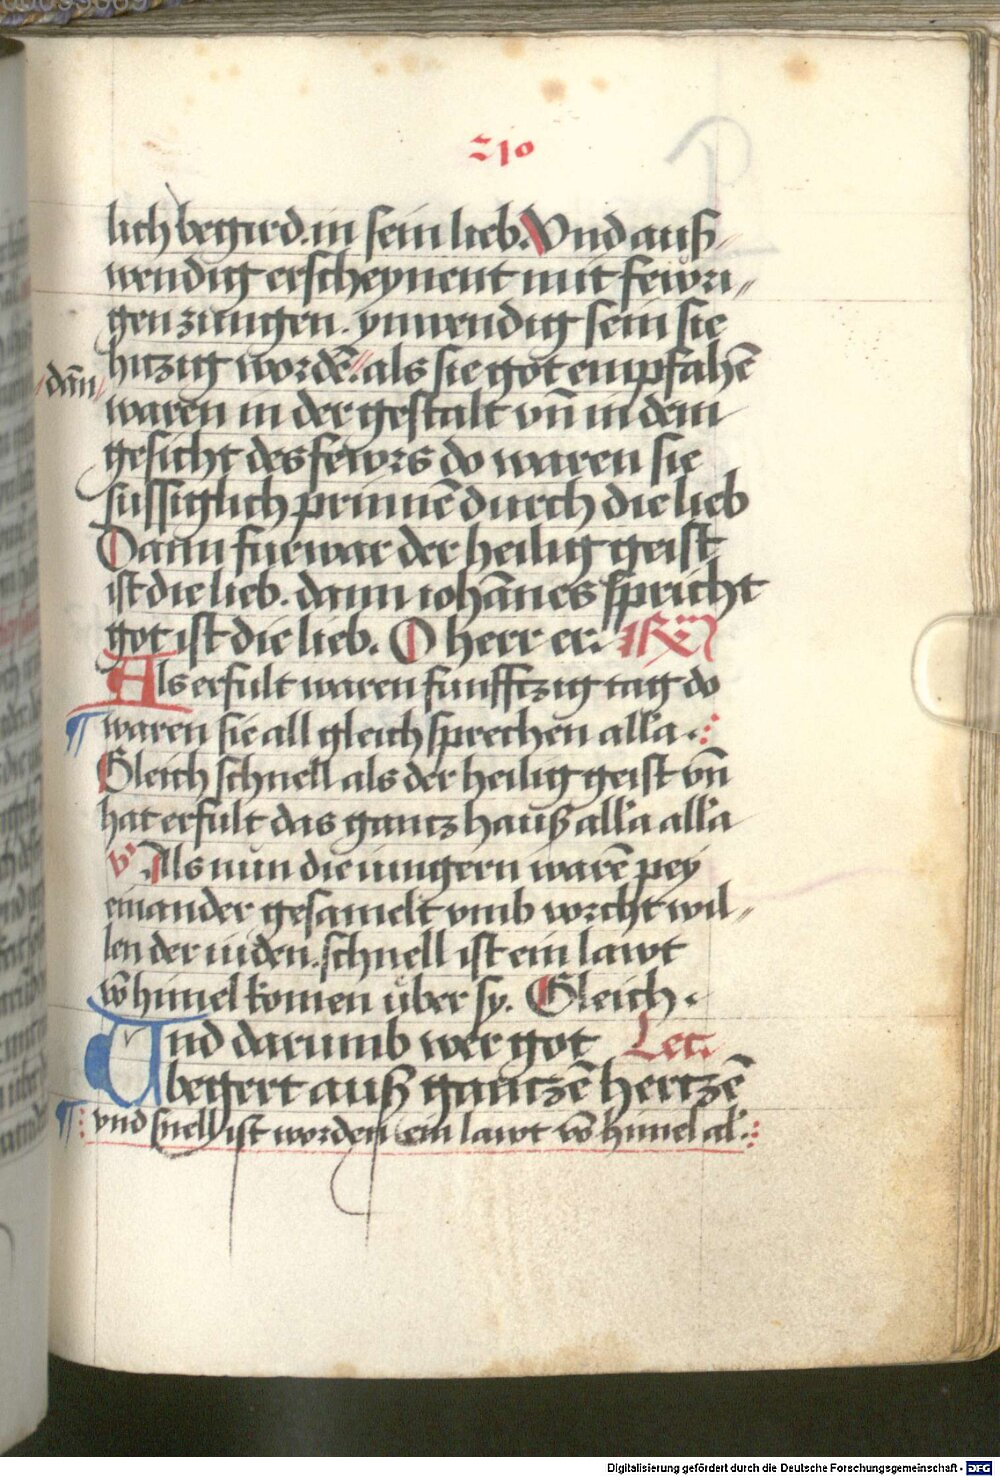 210
lich begird. in sein lieb. Vnd auß
wendig erscheynent mit fewri
gen zungen. ynwendig sein sie
hitzig wordē. als sie got empfahē
/dan̄/
waren in der gestalt vn̄ in dem
gesicht des fewrs do waren sie
sussiglich prinnē durch die lieb
Dann furwar der heilig geist
ist die lieb. dann iohānes spricht
got ist die lieb. O herr er.
Als erfult waren funfftzig tag do
waren sie all gleich sprechen alla
Gleich schnell als der heilig geist vn̄
hat erfult das gantz hauß alla alla
v Als nun die iungern warē pey
einander gesamelt vmb vorcht wil
len der iuden. schnell ist ein lawt
vō himel komen über sy. Gleich
Vnd darumb wer got Lec
begert auß gantzē hertzē
vnd snell ist worden ein lawt vō himel al
Digitalisierung gefördert durch die Deutsche Forschungsgemeinschaft - DFG